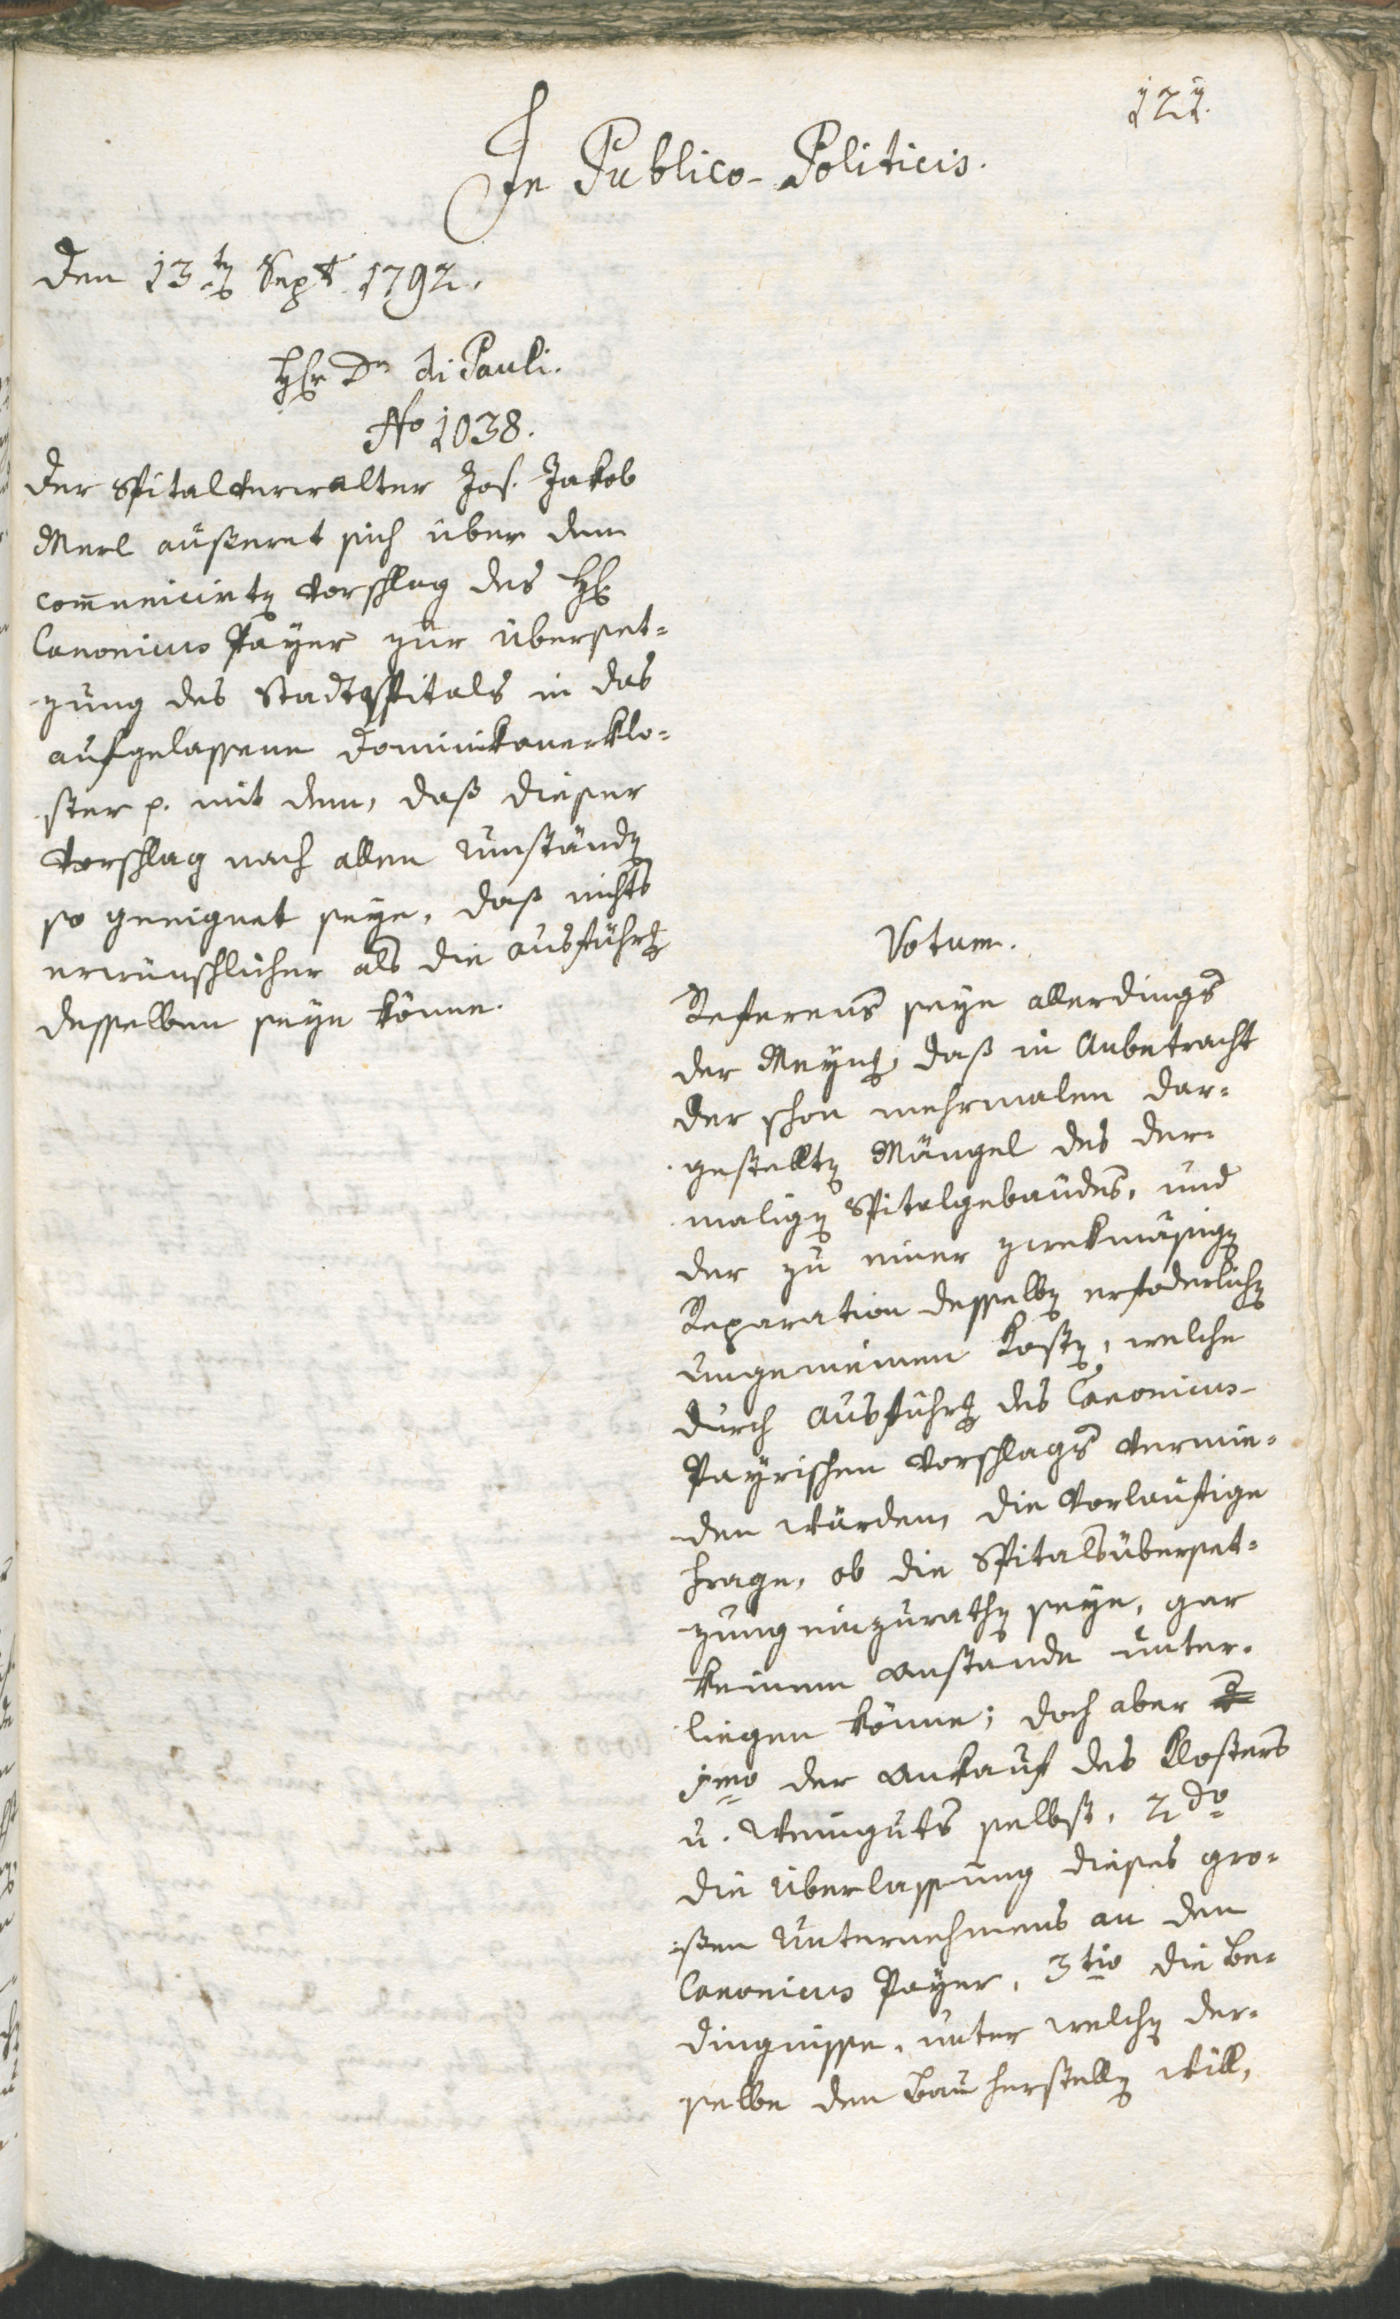 121.
In Publico-Politicis.
Den 13tn Sept 1792.
Hr Dr di Pauli.
No 1038.
Der Spitalverwalter Jos. Jakob
Merl äußeret sich über den
com̅unicirtn Vorschlag des H
Canonicus Payer zur Überset=
zung des Stadtspitals in das
aufgelassene Dominikanerklo=
ster p. mit dem, daß dieser
Vorschlag nach allen Umständn
so geeignet seye, daß nichts
erwünschlicher als die Ausführg
desselben seyn könne.
Votum.
Referens seye allerdings
der Meyng, daß in Anbetracht
der schon mehrmalen dar=
gestelltn Mängel des der=
maligen Spitalgebäudes, und
der zu einer zwekmäsign
Reparation desselbn erfoderlichn
ungemeinen Kostn, welche
durch Ausführg des Canonicus-
Payrischen Vorschlags vermie=
den würden, die vorläufige
Frage, ob die Spitalsüberset=
zung einzurathn seye, gar
keinem Anstande unter=
liegen könne; doch aber
1mo der Ankauf des Klosters
u. Weinguts selbst, 2do
die Überlassung dieses gro=
ßen Unternehmens an den
Canonicus Payer, 3tio die Be=
dingnisse, unter welchn der=
selbe den Bau herstelln will,